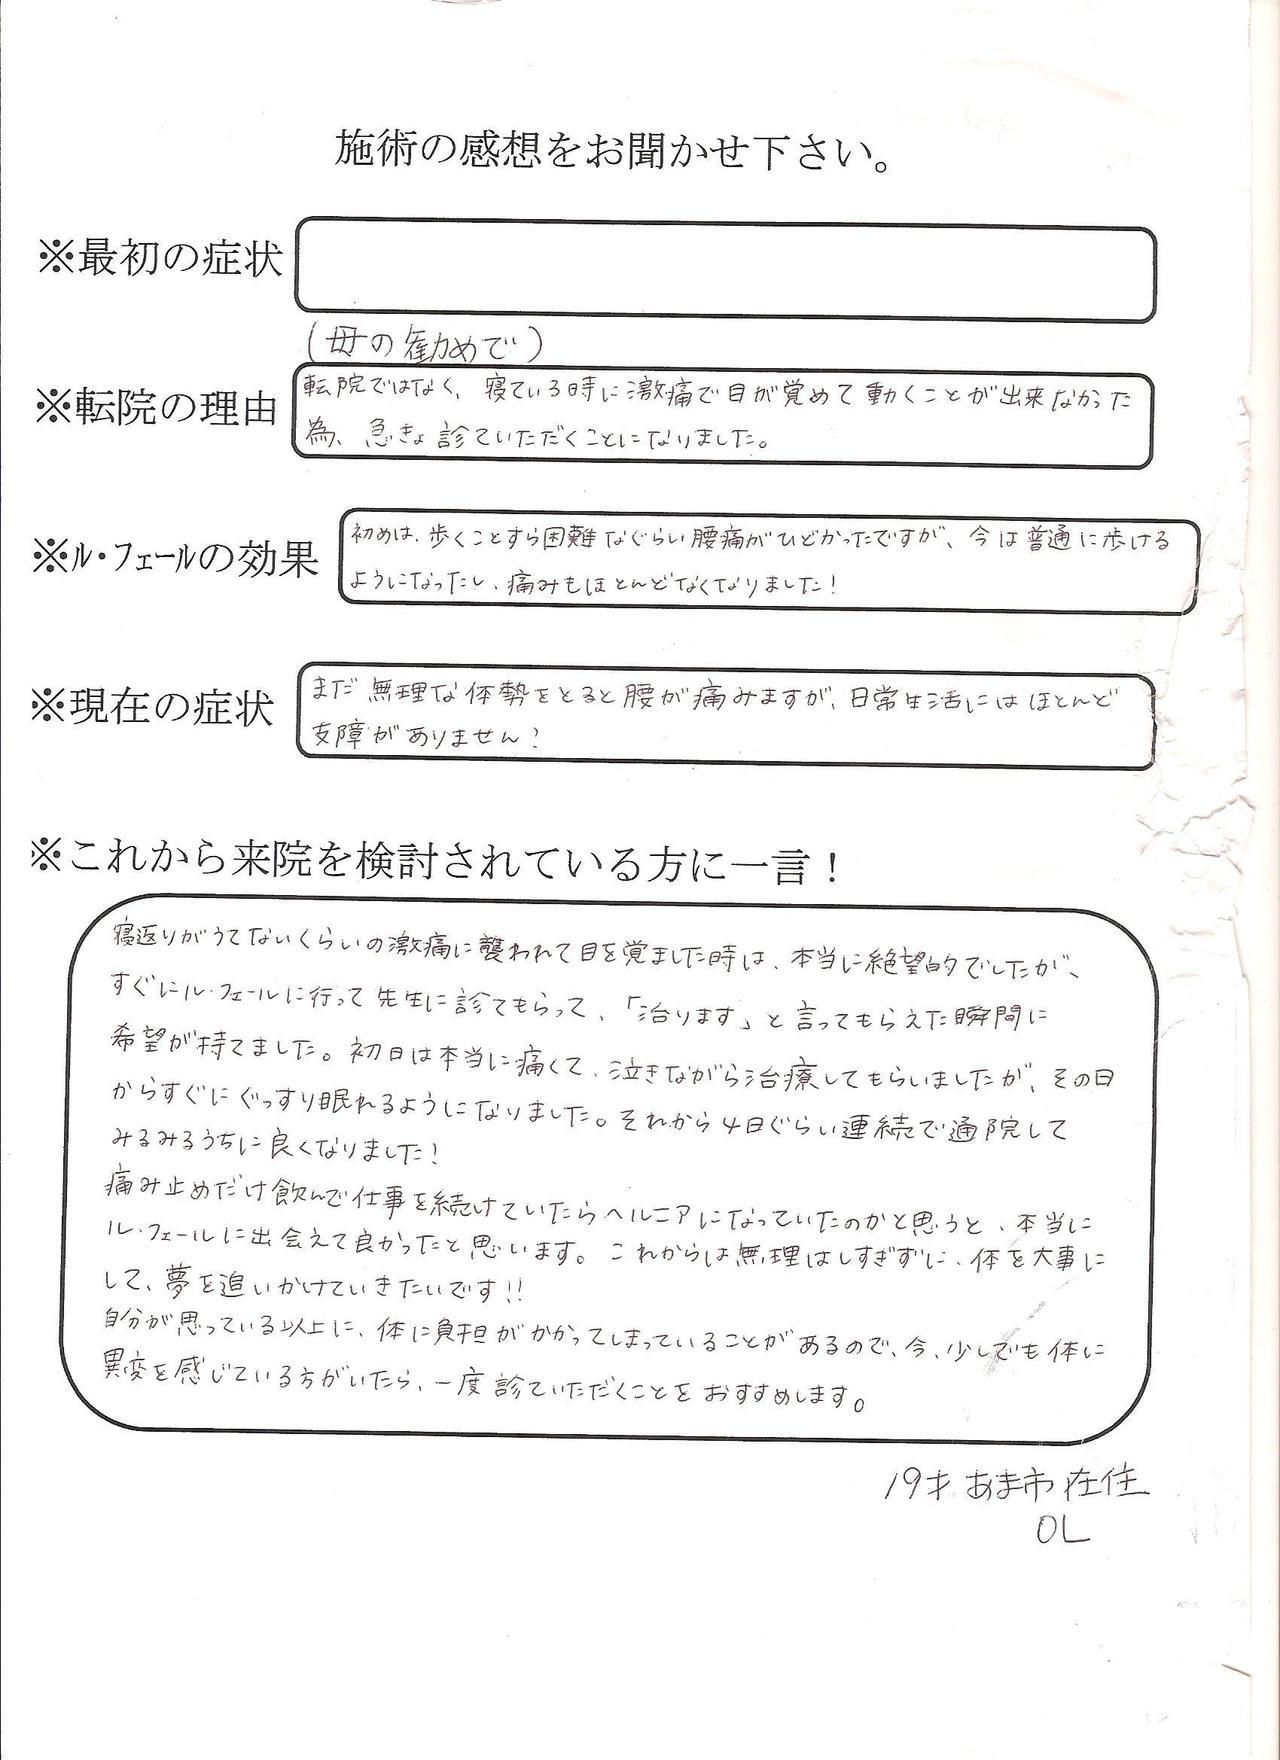 施術の感想をお聞かせ下さい。
※最初の症状
(母の勧めで)
※転院の理由
転院ではなく、寝ている時に激痛で目が覚めて動くことが出来なかった
為、急きょ診ていただくことになりました。
※ル・フェールの効果
初めは、歩くことすら困難なぐらい腰痛がひどかったですが、今は普通に歩ける
ようになったし、痛みもほとんどなくなりました!
※現在の症状
まだ無理な体勢をとると腰が痛みますが、日常生活にはほとんど
支障がありません!
※これから来院を検討されている方に一言!
寝返りがうてないくらいの激痛に襲われて目を覚ました時は、本当に絶望的でしたが、
すぐにル・フェールに行って先生に診てもらって、「治ります」と言ってもらえた瞬間に
希望が持てました。初日は本当に痛くて、泣きながら治療してもらいましたが、その日
からすぐにぐっすり眠れるようになりました。それから4日ぐらい連続で通院して
みるみるうちに良くなりました!
痛み止めだけ飲んで仕事を続けていたらヘルニアになっていたのかと思うと、本当に
ル・フェールに出会えて良かったと思います。これからは無理はしすぎずに、体を大事に
して、夢を追いかけていきたいです!!
自分が思っている以上に、体に負担がかかってしまっていることがあるので、今、少しでも体に
異変を感じている方がいたら、一度診ていただくことをおすすめします。
19才 あま市在住
OL